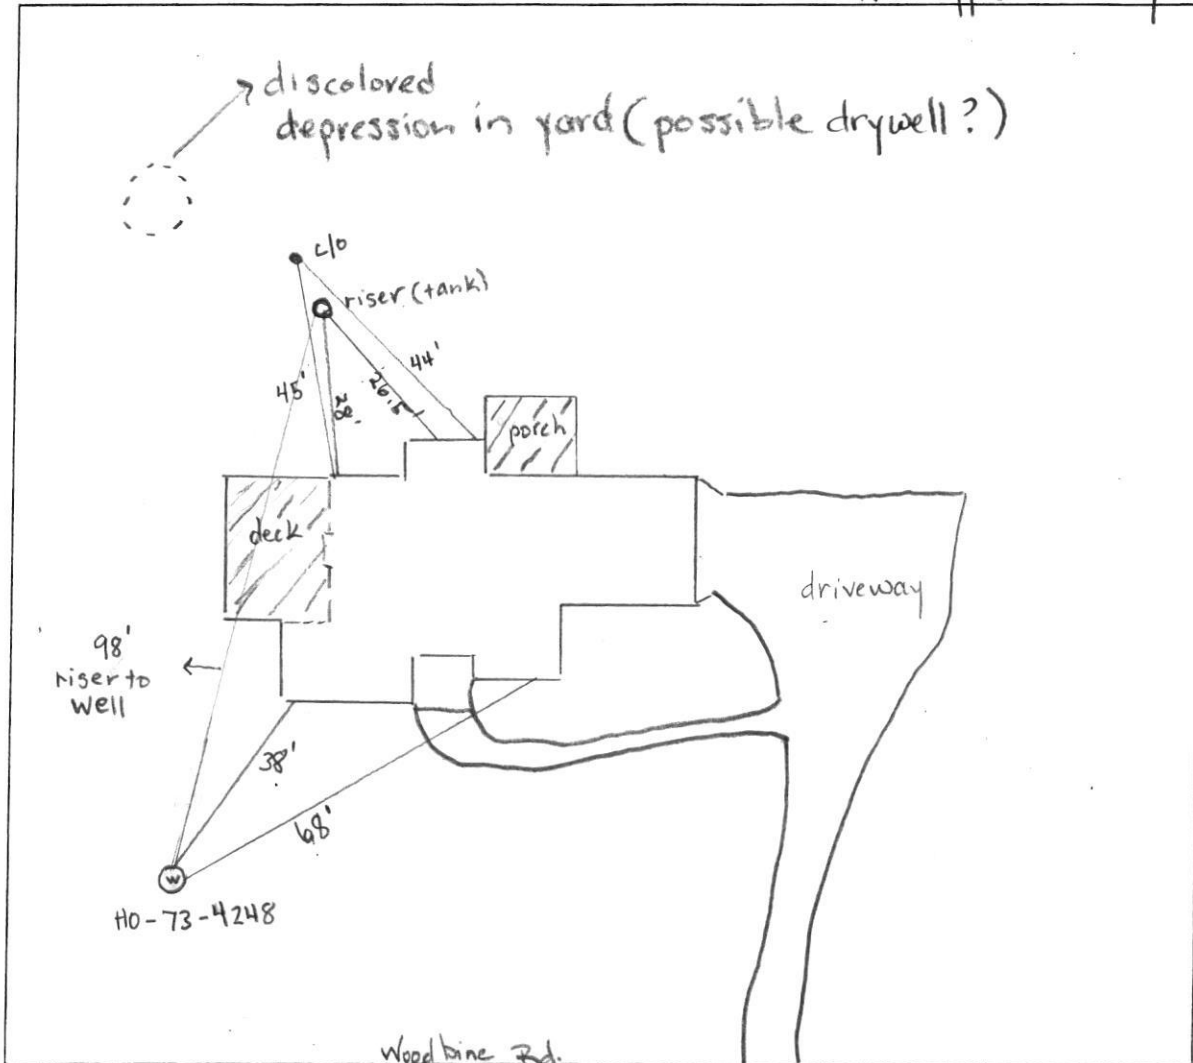 discolored
depression in yard (possible drywell?)
c/o
riser (tank)
44'
45'
26.5'
porch
deck
driveway
98'
riser to
well
38'
68'
W
HO-73-4248
Woodbine Rd.